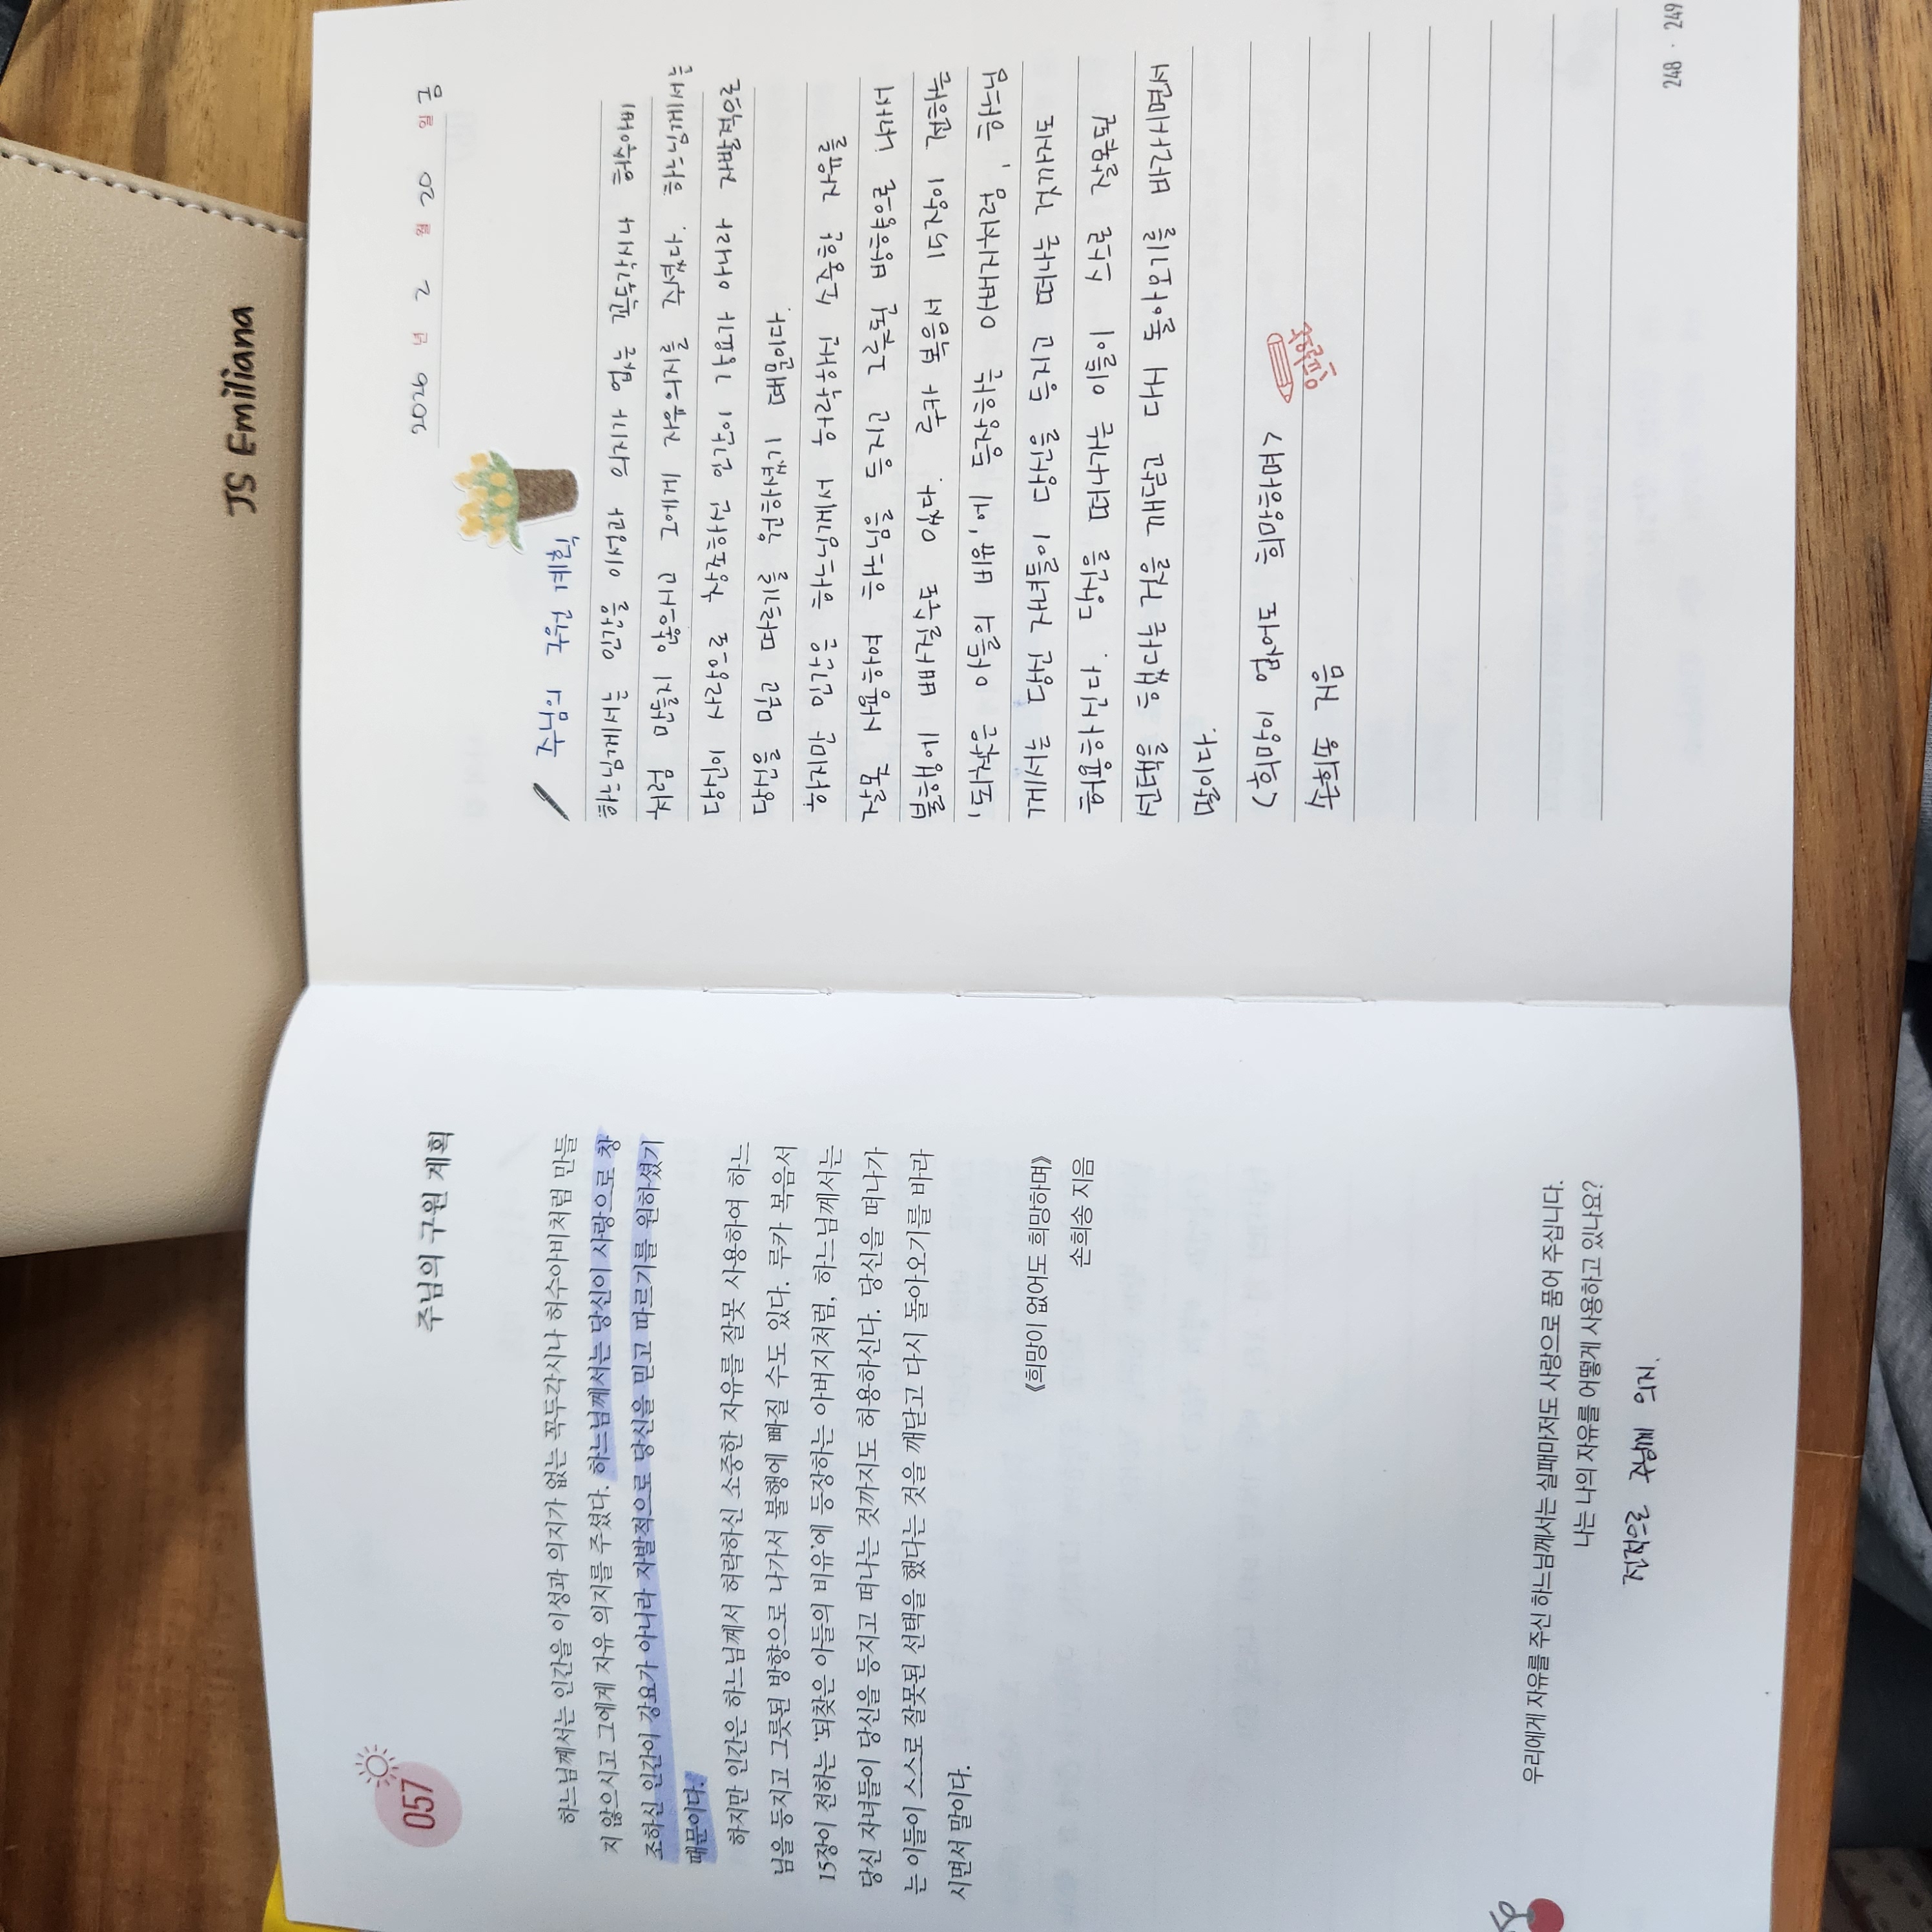 JS Emiliana
057
주님의 구원 계획
하느님께서는 인간을 이성과 의지가 없는 꼭두각시나 허수아비처럼 만들
지 않으시고 그에게 자유 의지를 주셨다. 하느님께서는 당신이 사랑으로 창
조하신 인간이 강요가 아니라 자발적으로 당신을 믿고 따르기를 원하셨기
때문이다.
하지만 인간은 하느님께서 허락하신 소중한 자유를 잘못 사용하여 하느
님을 등지고 그릇된 방향으로 나가서 불행에 빠질 수도 있다. 루카 복음서
15장이 전하는 '되찾은 아들의 비유'에 등장하는 아버지처럼, 하느님께서는
당신 자녀들이 당신을 등지고 떠나는 것까지도 허용하신다. 당신을 떠나가
는 이들이 스스로 잘못된 선택을 했다는 것을 깨닫고 다시 돌아오기를 바라
시면서 말이다.
《희망이 없어도 희망하며》
손희송 지음
우리에게 자유를 주신 하느님께서는 실패마저도 사랑으로 품어 주십니다.
나는 나의 자유를 어떻게 사용하고 있나요?
전적으로 주님께 의지.
2026 년 2 월 20 일 금
주님의 구원 계획
하느님께서는 인간을 이성과 의지가 없는 꼭두각시나 허수아비
처럼 만들지 않으시고 그에게 자유 의지를 주셨다. 하느님께서는
당신이 사랑으로 창조하신 인간이 강요가 아니라 자발적으로
당신을 믿고 따르기를 원하셨기 때문이다.
하지만 인간은 하느님께서 허락하신 소중한 자유를
잘못 사용하여 하느님을 등지고 그릇된 방향으로 나가서
불행에 빠질 수도 있다. 루카 복음서 15장이 전하는
'되찾은 아들의 비유'에 등장하는 아버지처럼, 하느님
께서는 당신 자녀들이 당신을 등지고 떠나는 것까지도
허용하신다. 당신을 떠나가는 이들이 스스로 잘못된
선택을 했다는 것을 깨닫고 다시 돌아오기를 바라시면서
말이다.
<희망이 없어도 희망하며>
손희송 지음